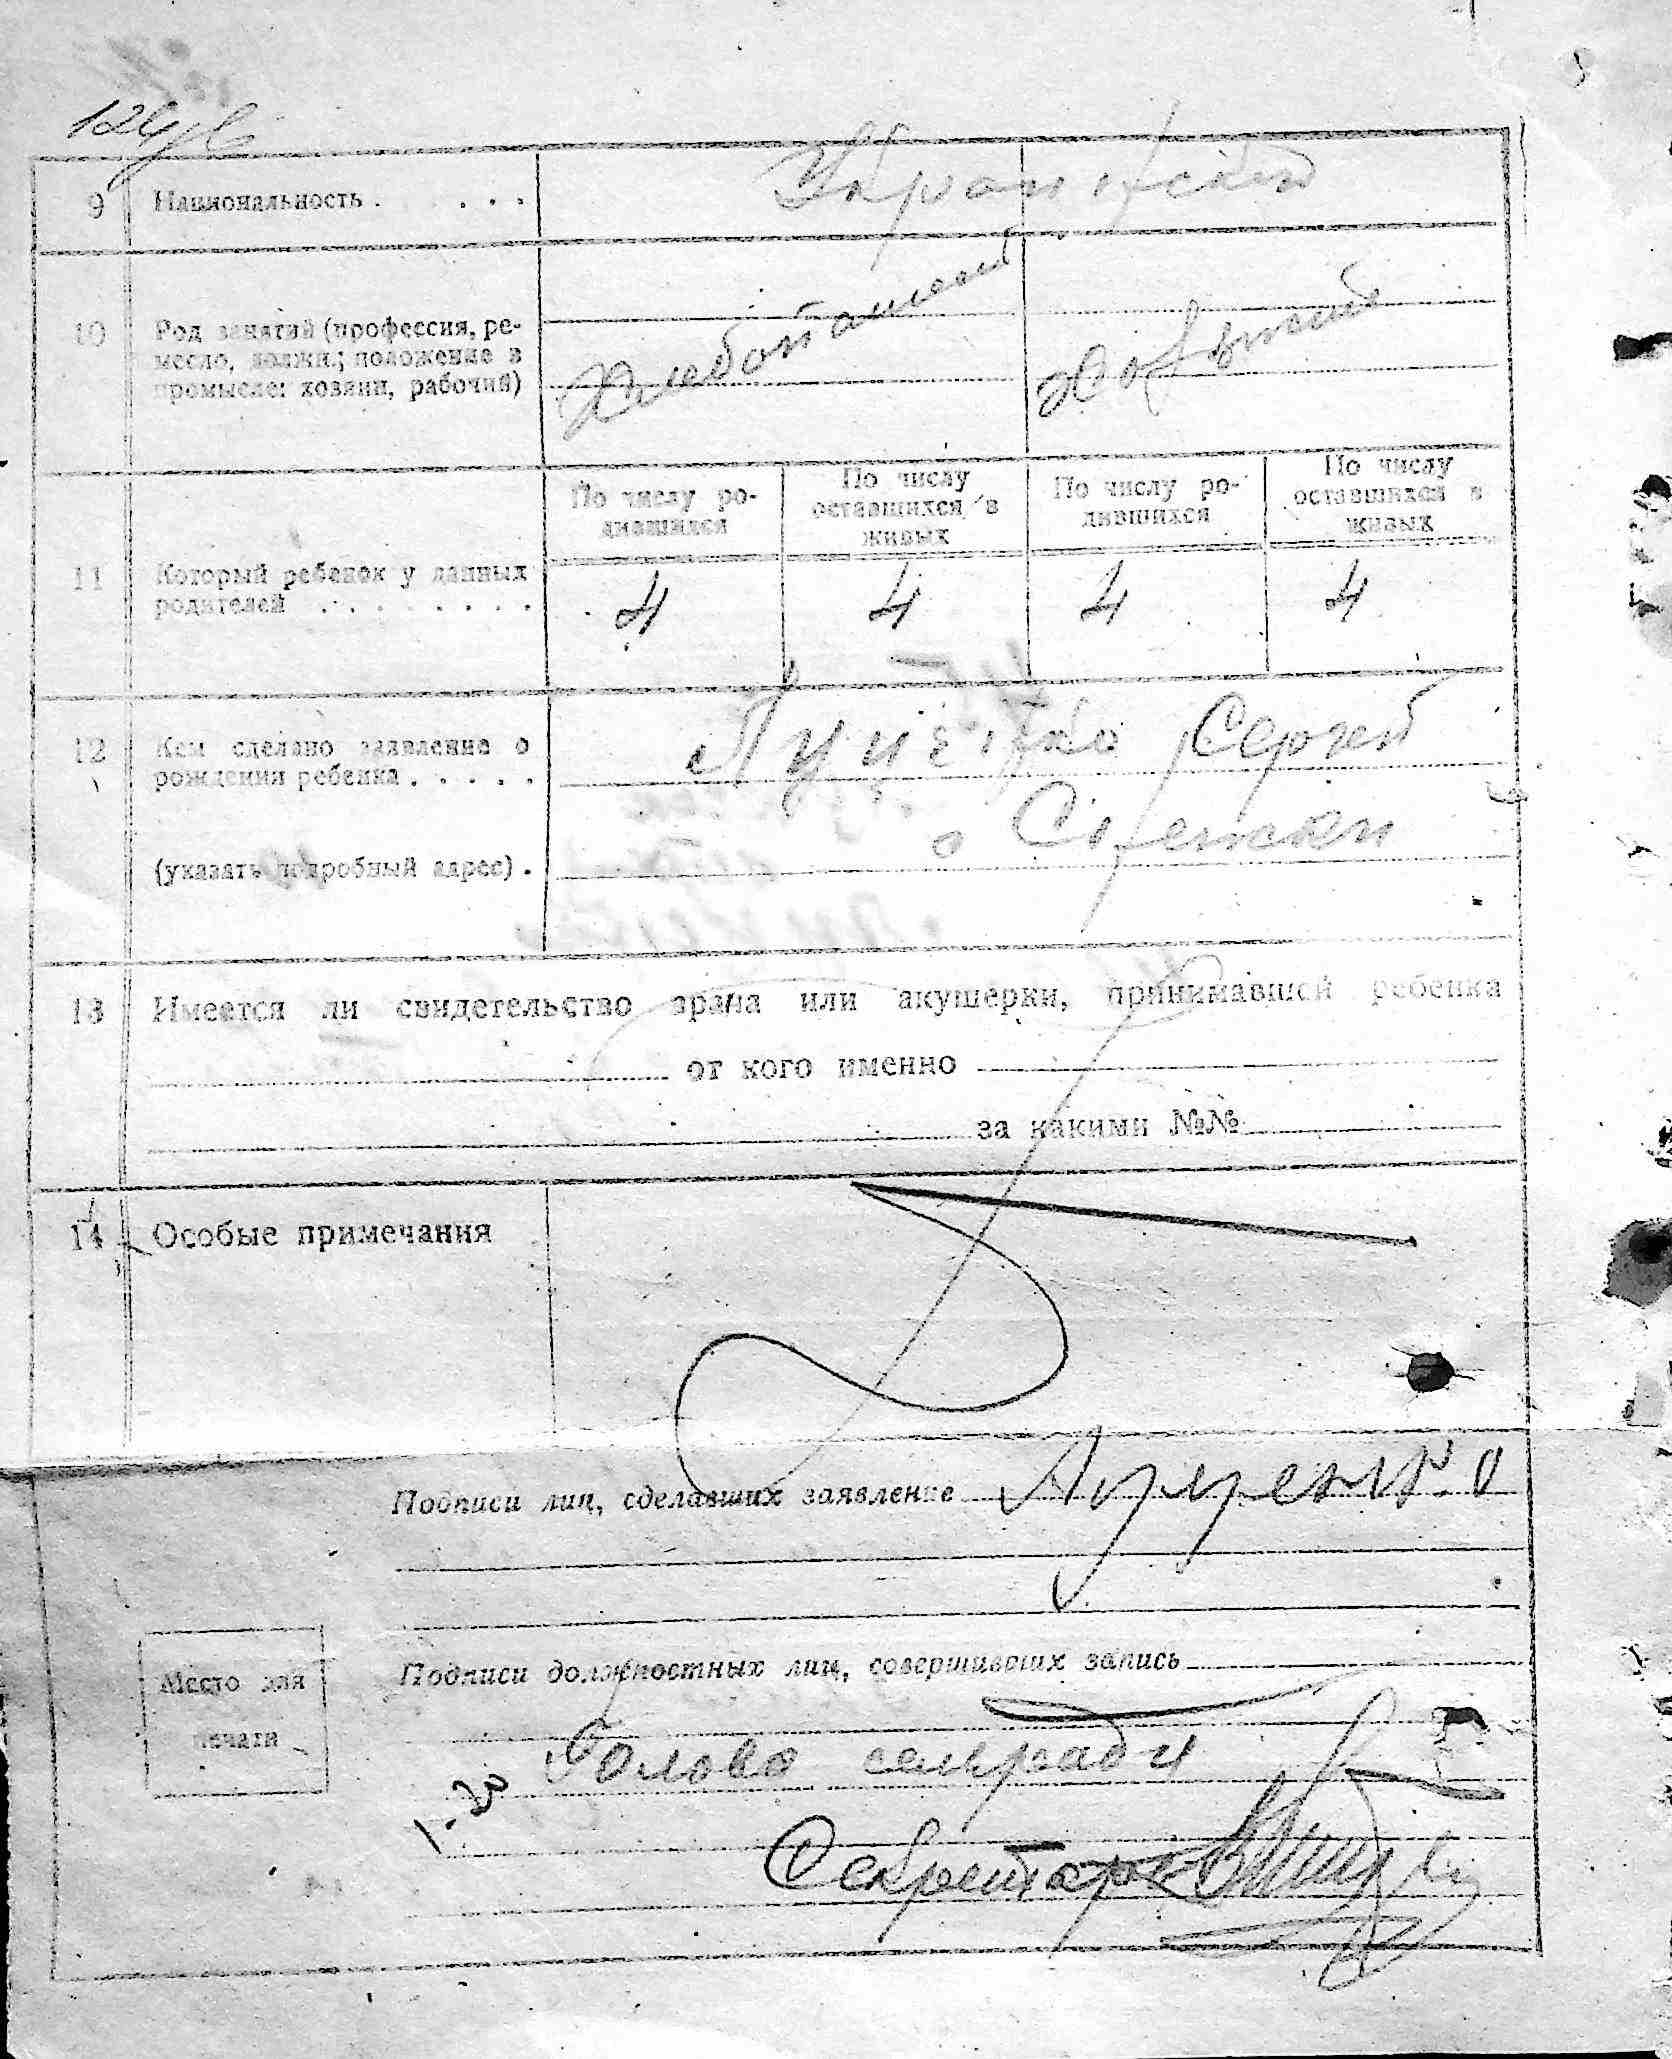 9 Национальность . . . . .
10 Род занятий (профессия, ре-
месло, должн.; положение в
промысле: хозяин, рабочий)
Хлебопашест
По числу ро-
дившихся
По числу
оставшихся в
живых
По числу ро-
дившихся
По числу
оставшихся в
живых
11 Который ребенок у данных
родителей . . . . . . . .
4 4 4 4
12 Кем сделано заявление о
рождении ребенка . . . . .
Луценко Сергей
(указать подробный адрес) .
13 Имеется ли свидетельство врача или акушерки, принимавшей ребенка
от кого именно
за какими №№
14 Особые примечания
Подписи лиц, сделавших заявление Луценко
Подписи должностных лиц, совершивших запись
Место для
печати
Голова сельради
1-20
Секретарь